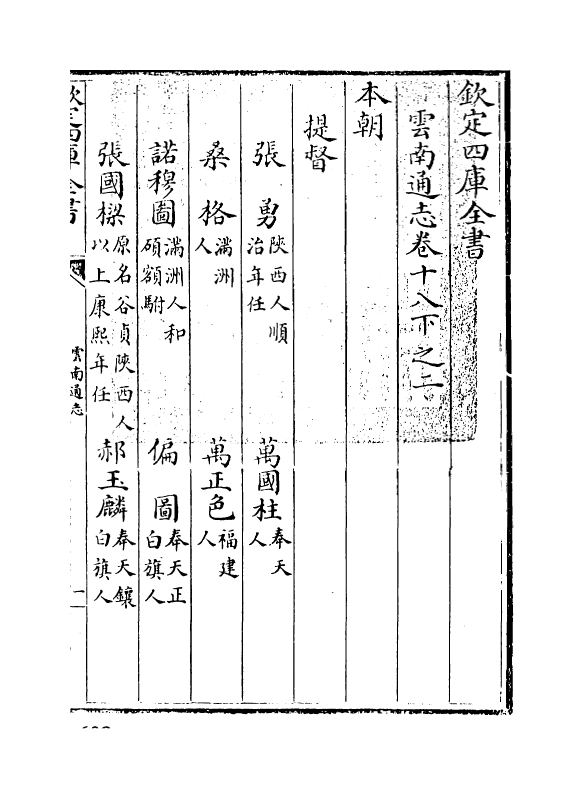 欽定四庫全書
雲南通志卷十八下之二
本朝
提督
張勇 陝西人順治年任 萬國柱 奉天人
桑格 滿洲人 萬正色 福建人
諾穆圖 滿洲人和碩額駙 偏圖 奉天正白旗人
張國樑 原名谷貞陝西人以上康熙年任 郝玉麟 奉天鑲白旗人
欽定四庫全書 雲南通志 一